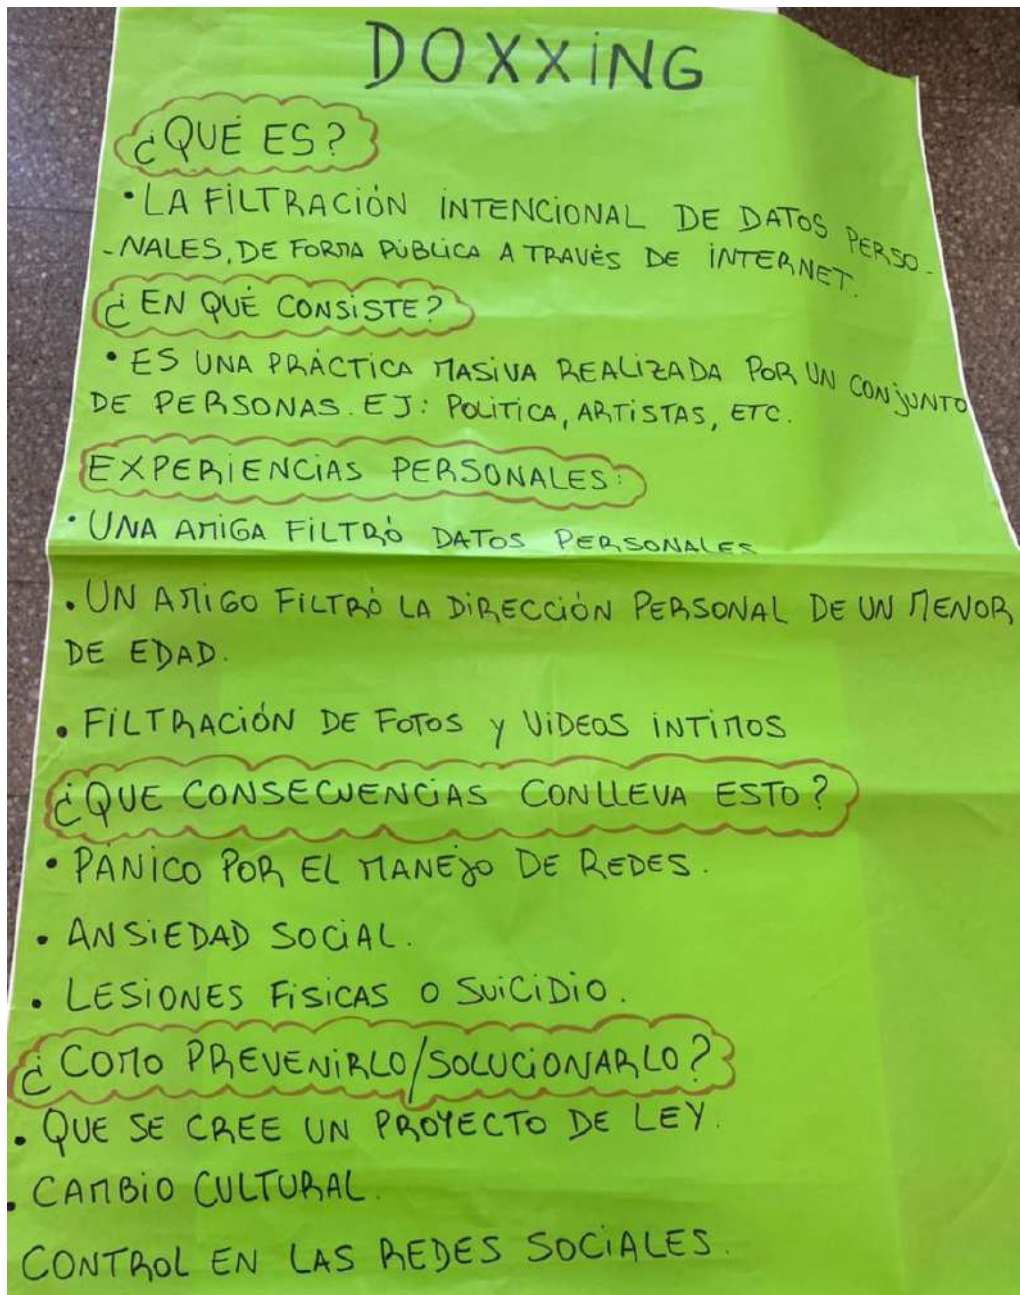 DOXXING
¿QUÉ ES?
• LA FILTRACIÓN INTENCIONAL DE DATOS PERSO-
-NALES, DE FORMA PÚBLICA A TRAVÉS DE INTERNET.
¿EN QUÉ CONSISTE?
• ES UNA PRÁCTICA MASIVA REALIZADA POR UN CONJUNTO
DE PERSONAS. EJ: POLITICA, ARTISTAS, ETC.
EXPERIENCIAS PERSONALES:
• UNA AMIGA FILTRÓ DATOS PERSONALES
• UN AMIGO FILTRÓ LA DIRECCIÓN PERSONAL DE UN MENOR
DE EDAD.
• FILTRACIÓN DE FOTOS Y VIDEOS INTIMOS
¿QUE CONSECUENCIAS CONLLEVA ESTO?
• PÁNICO POR EL MANEJO DE REDES.
• ANSIEDAD SOCIAL.
• LESIONES FISICAS O SUICIDIO.
¿COMO PREVENIRLO/SOLUCIONARLO?
• QUE SE CREE UN PROYECTO DE LEY.
• CAMBIO CULTURAL.
CONTROL EN LAS REDES SOCIALES.